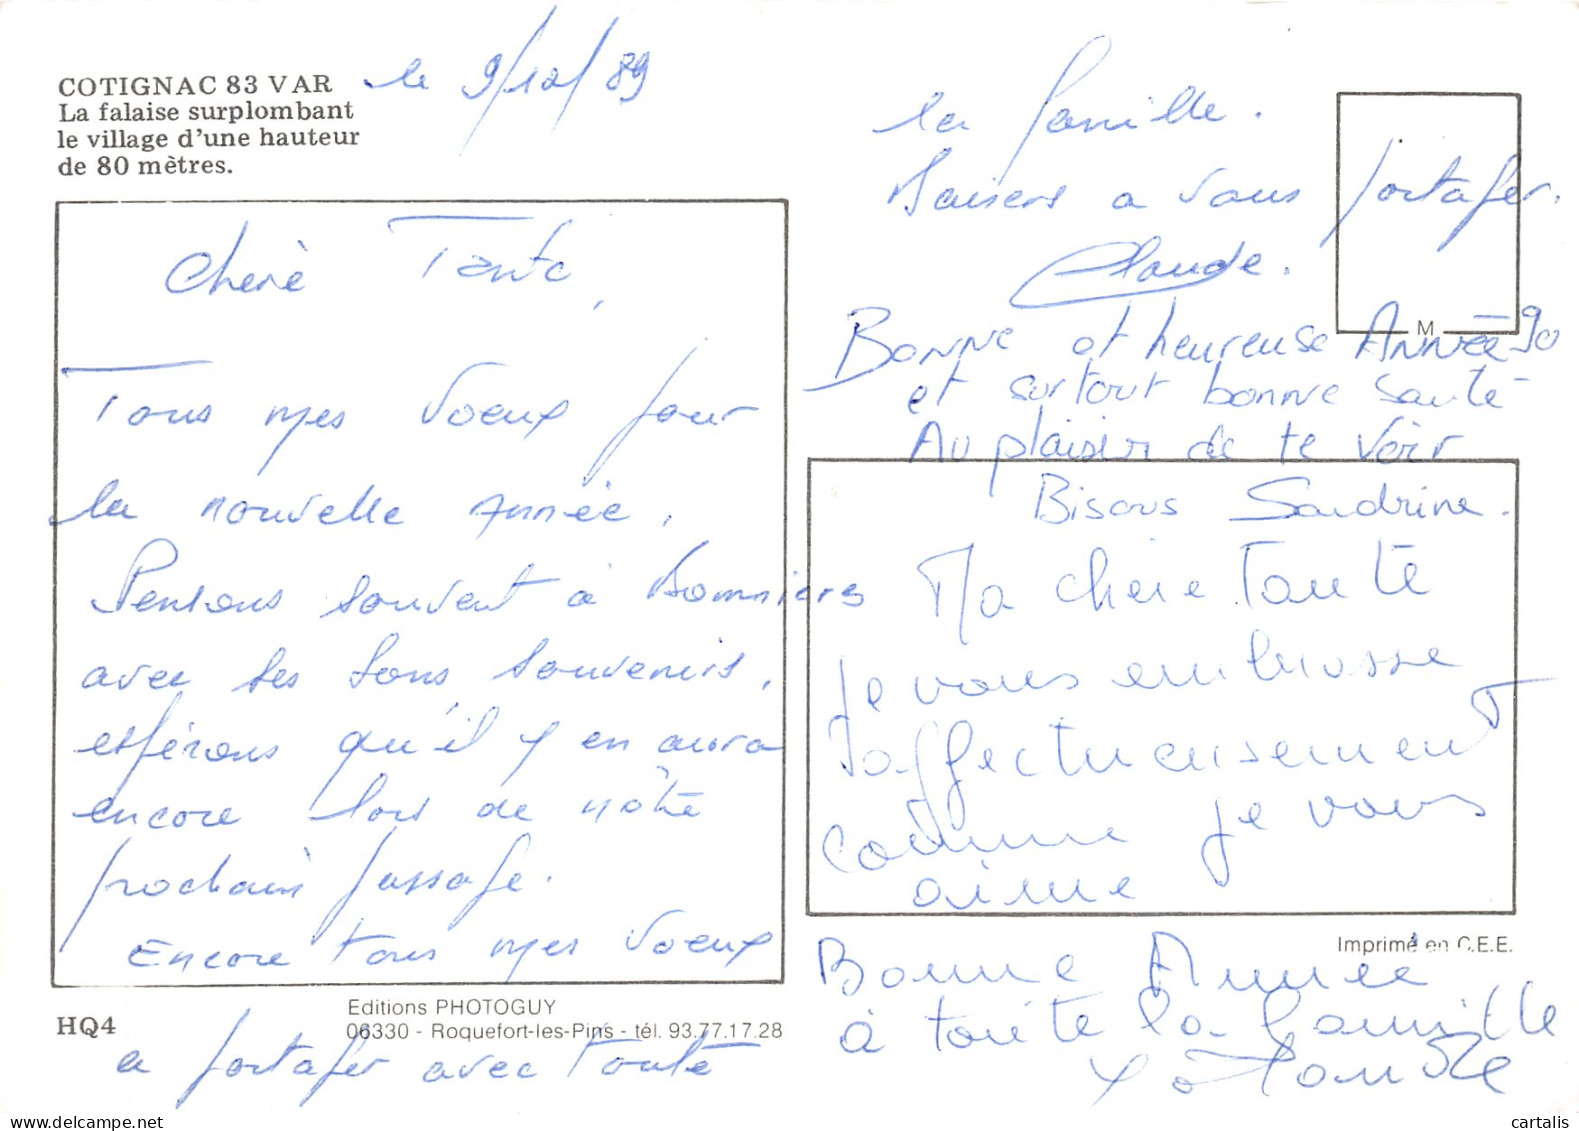 COTIGNAC 83 VAR
La falaise surplombant
le village d'une hauteur
de 80 mètres.
le 9/12/89
Cherè Tante,
Tous mes Voeux pour
la nouvelle Année,
Pensons souvent à Bomniers
avec ses bons souvenirs,
espérons qu'il y en aura
encore lors de nôtre
prochain passage.
Encore tous mes Voeux
a partager avec toute
la famille.
Baisers a vous partager.
Claude.
Bonne et heureuse Année 90
et surtout bonne santé
Au plaisir de te voir
Bisous Sandrine.
Ma chere Tante
je vous embrasse
affectueusement
comme je vous
aime
Bonne Année
à toute la famille
Yolande
M
Imprimé en C.E.E.
HQ4
Editions PHOTOGUY
06330 - Roquefort-les-Pins - tél. 93.77.17.28
cartalis